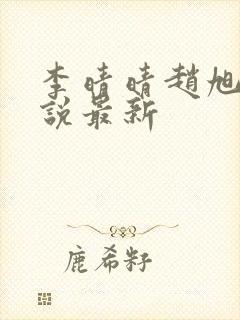 李晴晴趙旭
說最新
鹿希籽